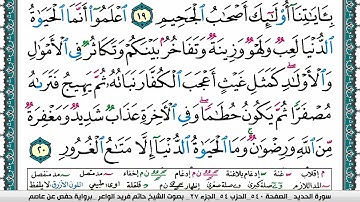 بِـَٔايَـٰتِنَآ أُو۟لَـٰٓئِكَ أَصْحَـٰبُ ٱلْجَحِيمِ ١٩ ٱعْلَمُوٓا۟ أَنَّمَا ٱلْحَيَوٰةُ
ٱلدُّنْيَا لَعِبٌ وَلَهْوٌ وَزِينَةٌ وَتَفَاخُرٌۢ بَيْنَكُمْ وَتَكَاثُرٌ فِى ٱلْأَمْوَٰلِ
وَٱلْأَوْلَـٰدِ كَمَثَلِ غَيْثٍ أَعْجَبَ ٱلْكُفَّارَ نَبَاتُهُۥ ثُمَّ يَهِيجُ فَتَرَىٰهُ
مُصْفَرًّا ثُمَّ يَكُونُ حُطَـٰمًا وَفِى ٱلْـَٔاخِرَةِ عَذَابٌ شَدِيدٌ وَمَغْفِرَةٌ
مِّنَ ٱللَّهِ وَرِضْوَٰنٌ وَمَا ٱلْحَيَوٰةُ ٱلدُّنْيَآ إِلَّا مَتَـٰعُ ٱلْغُرُورِ ٢٠
سورة الحديد - الصفحة ٥٤٠ الحزب ٥٤ الجزء ٢٧ - بصوت الشيخ حاتم فريد الواعر - برواية حفص عن عاصم